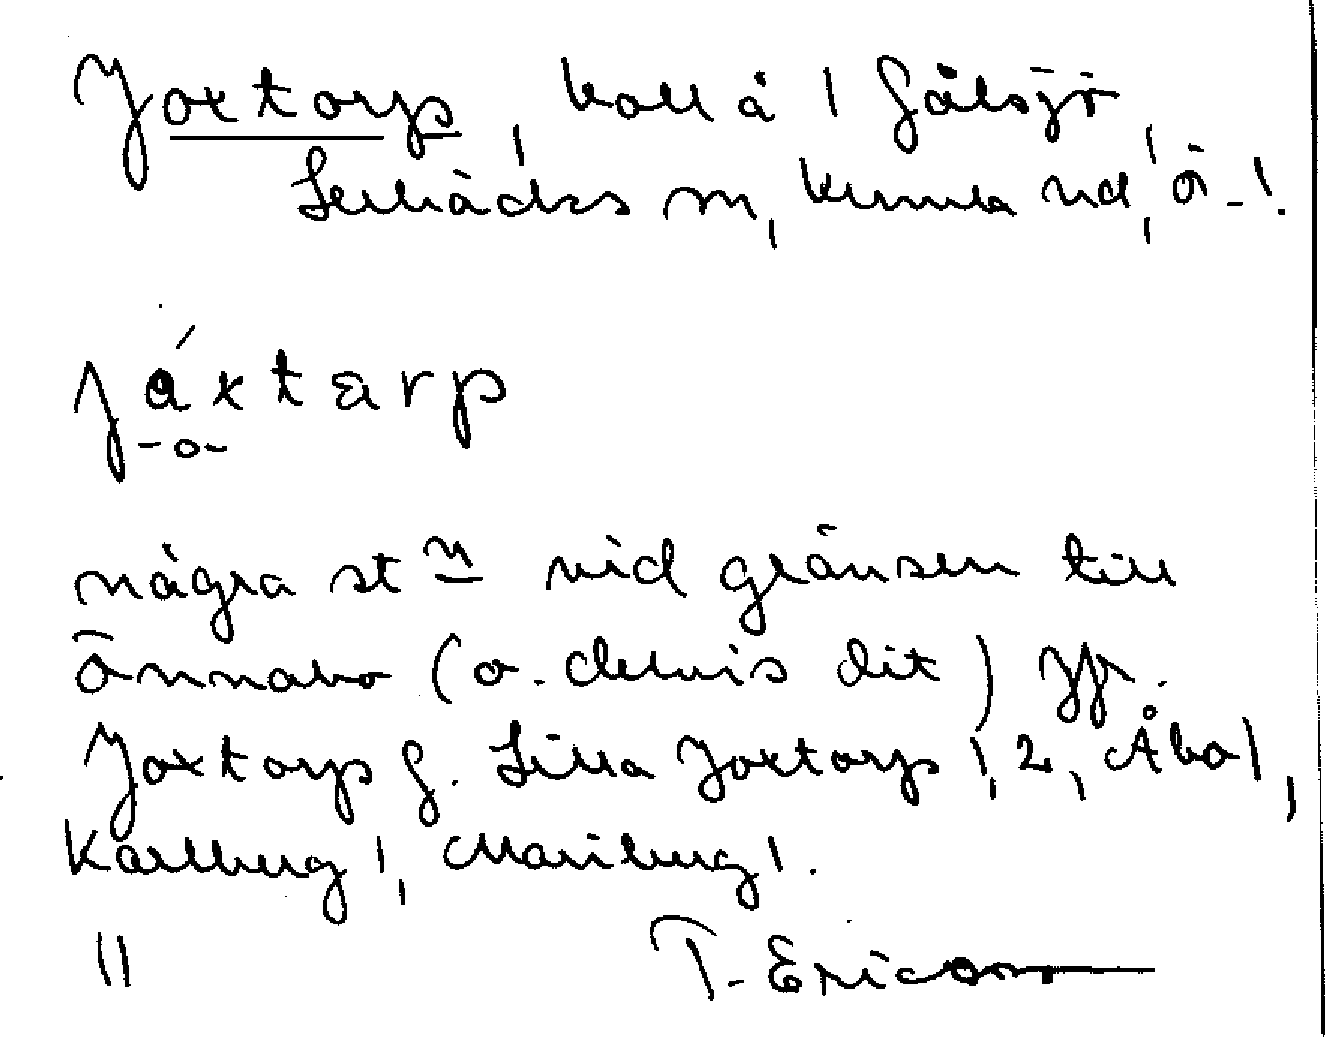 Joxtorp, koll å 1 Gålsjö,
Lerbäcks sn, Kumla hd, Ö-l.
jáxtarp
några st n vid gränsen till
Önnabo (o. delvis dit) Jfr.
Joxtorp g. Lilla Joxtorp 1, 2, Åbo 1,
Karlberg 1, Marieberg 1.
11 T. Ericsson